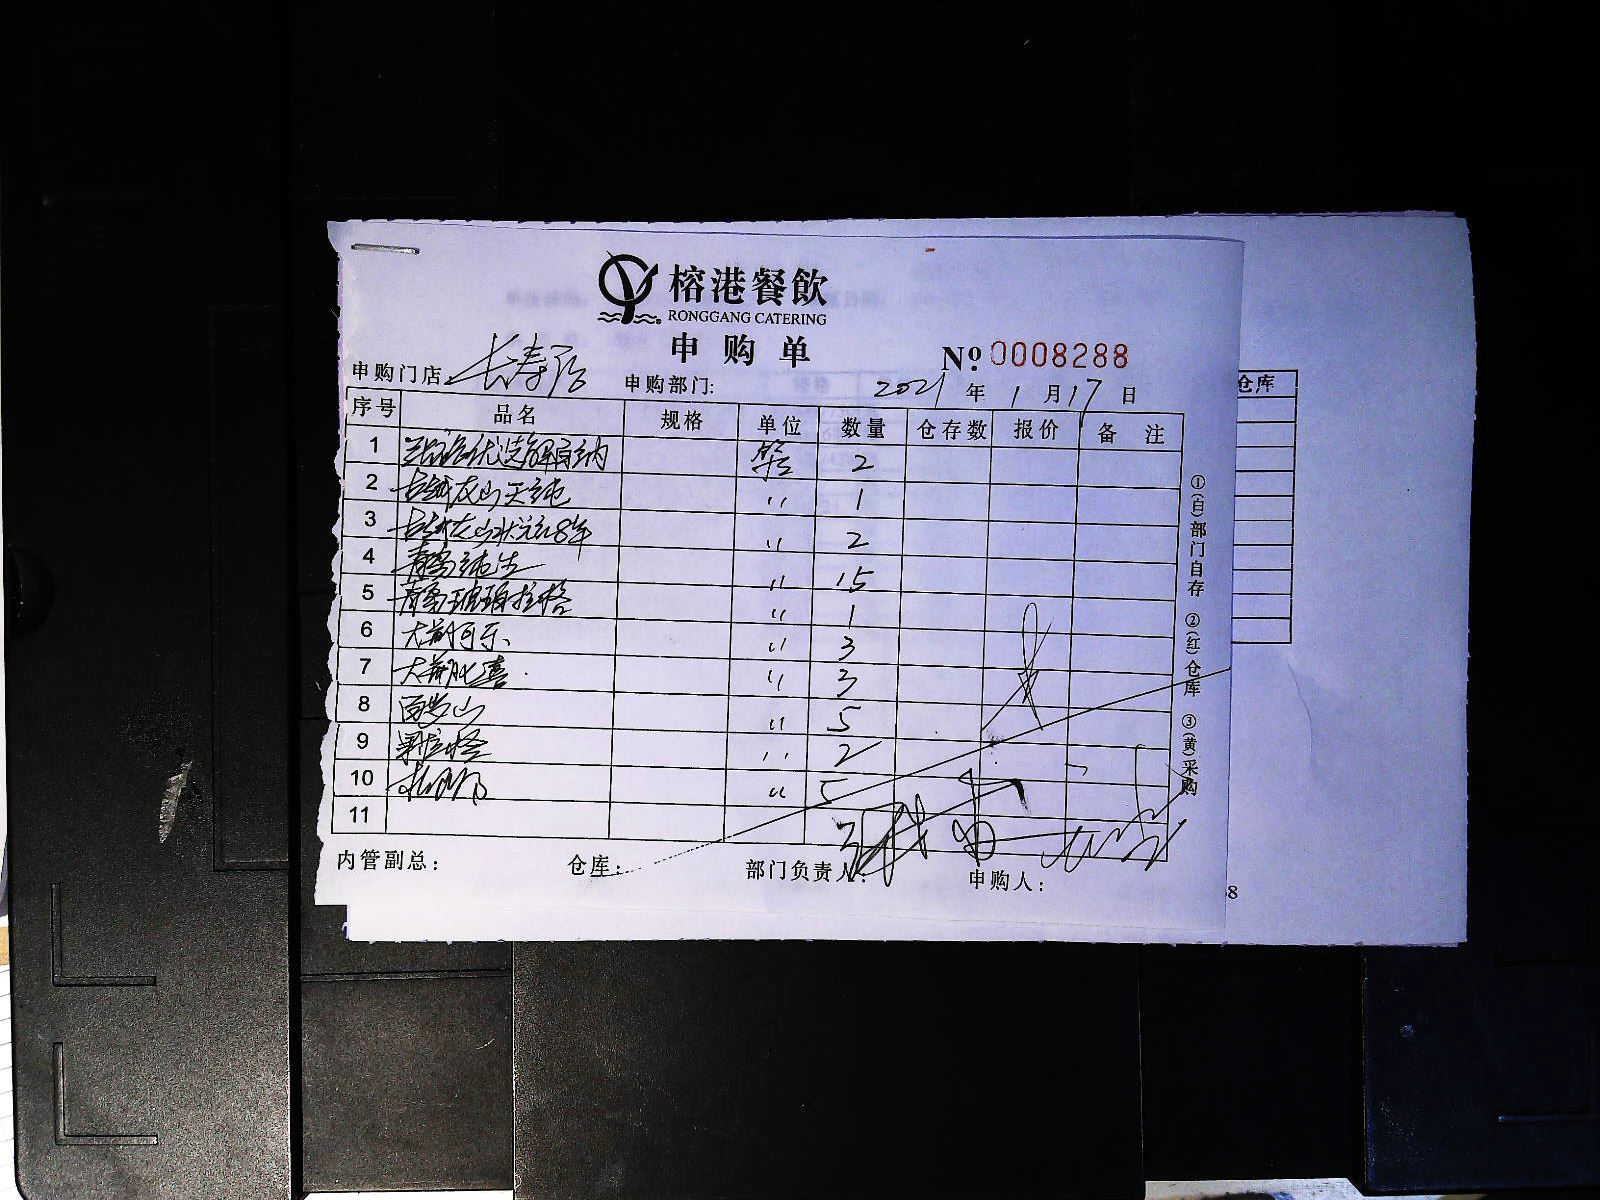 榕港餐飲
RONGGANG CATERING
申购单
№ 0008288
申购门店 长寿店 申购部门: 2021 年 1 月 17 日
序号 品名 规格 单位 数量 仓存数 报价 备注 仓库
1 优选解百纳 箱 2
2 古越龙山天纯 〃 1
3 古越龙山状元红8年 〃 2
4 青岛纯生 〃 15
5 青岛琥珀拉格 〃 1
6 大瓶可乐 〃 3
7 大瓶雪碧 〃 3
8 百岁山 〃 5
9 果粒橙 〃 2
10 〃 5
11
内管副总: 仓库: 部门负责人: 申购人:
①(白)部门自存 ②(红)仓库 ③(黄)采购